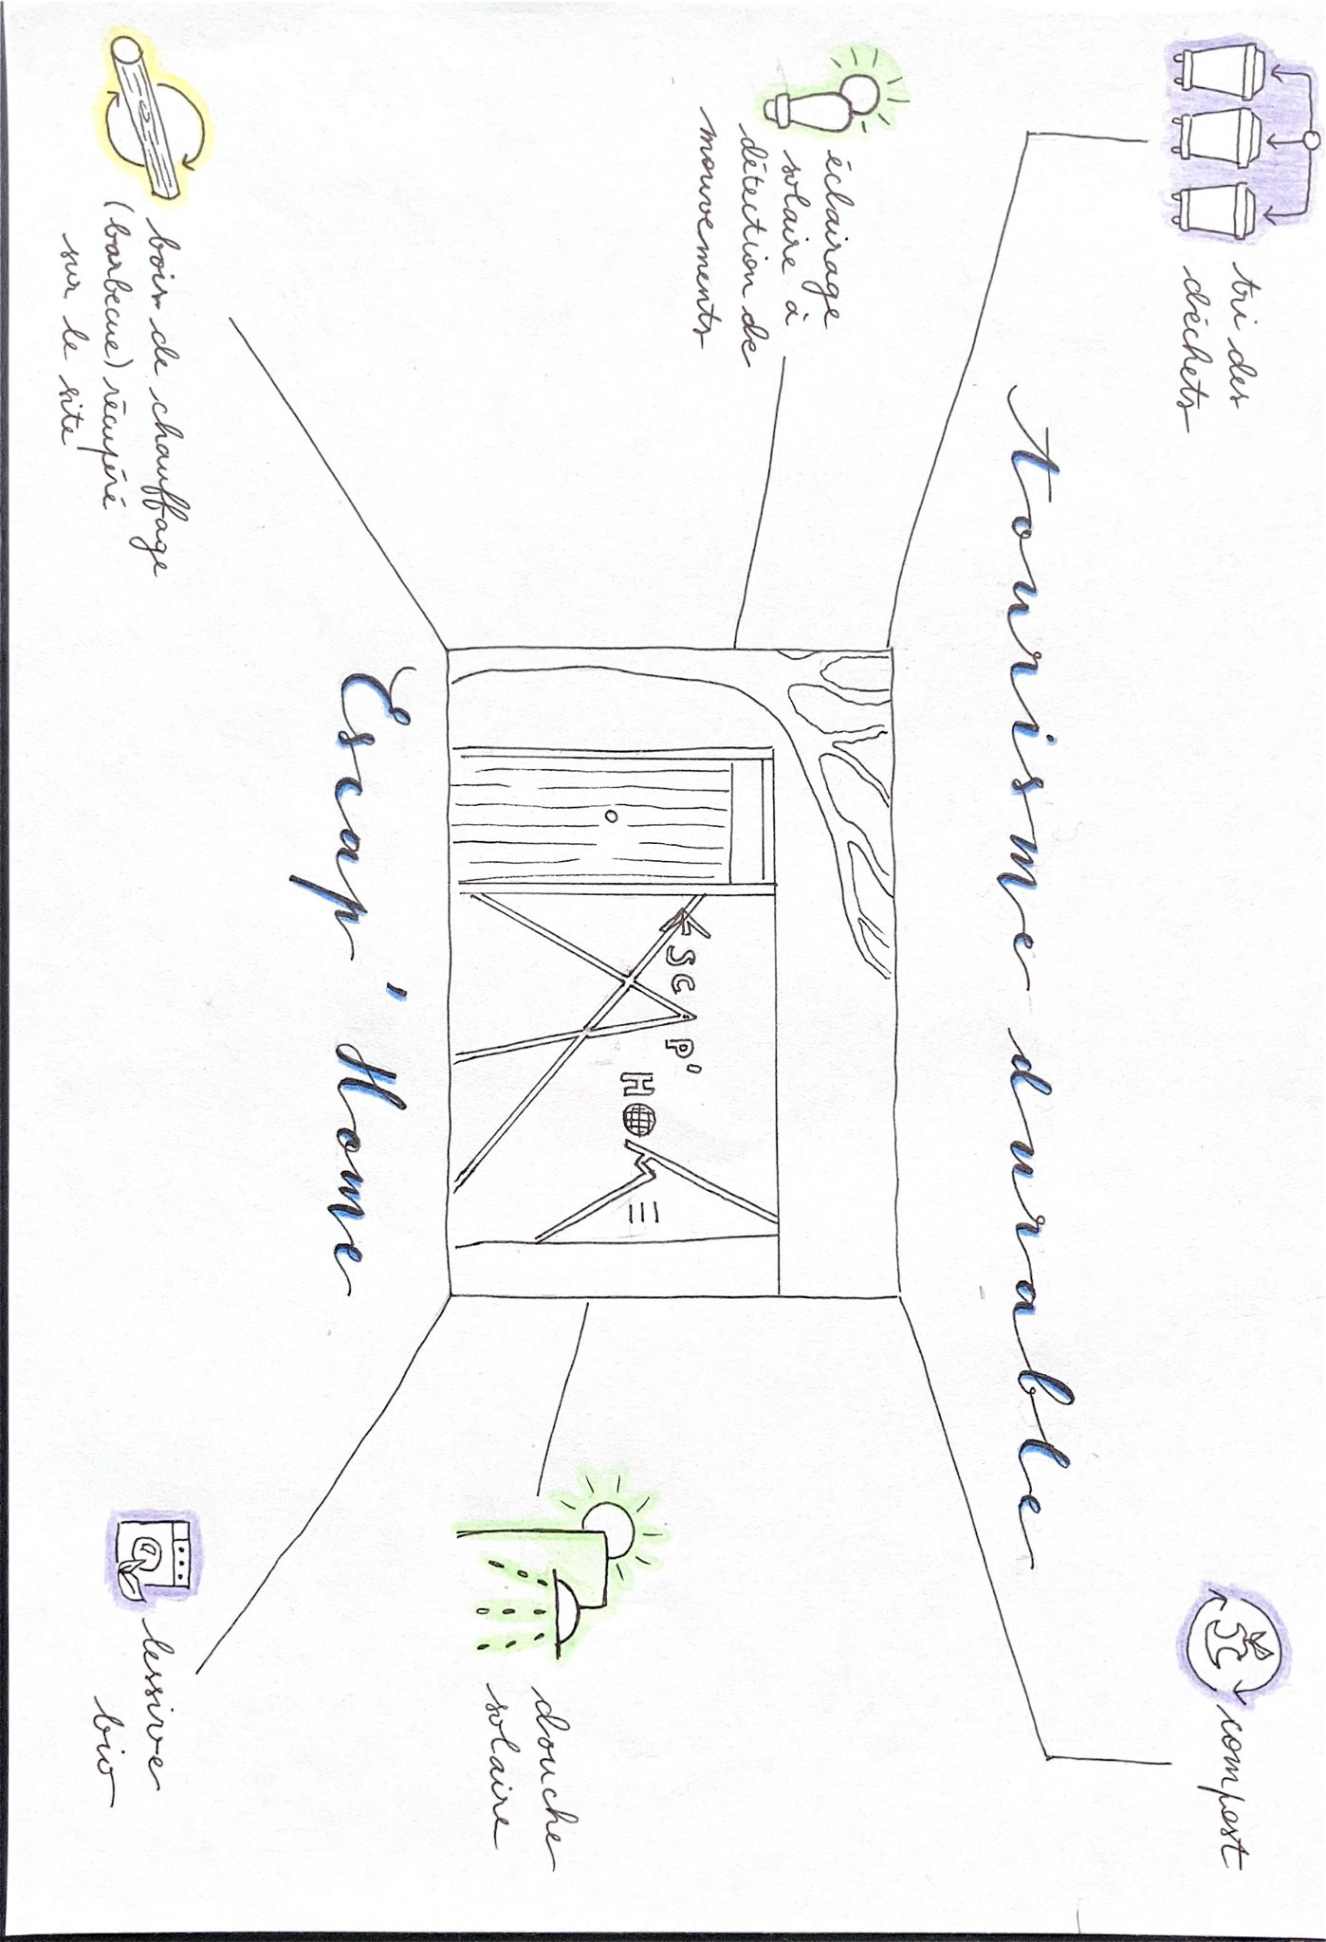 tri des
déchets
compost
tourisme durable
éclairage
solaire à
détection de
mouvements
Escap'
HOME
douche
solaire
Escap' Home
bois de chauffage
(barbecue) récupéré
sur le site!
lessive
bio